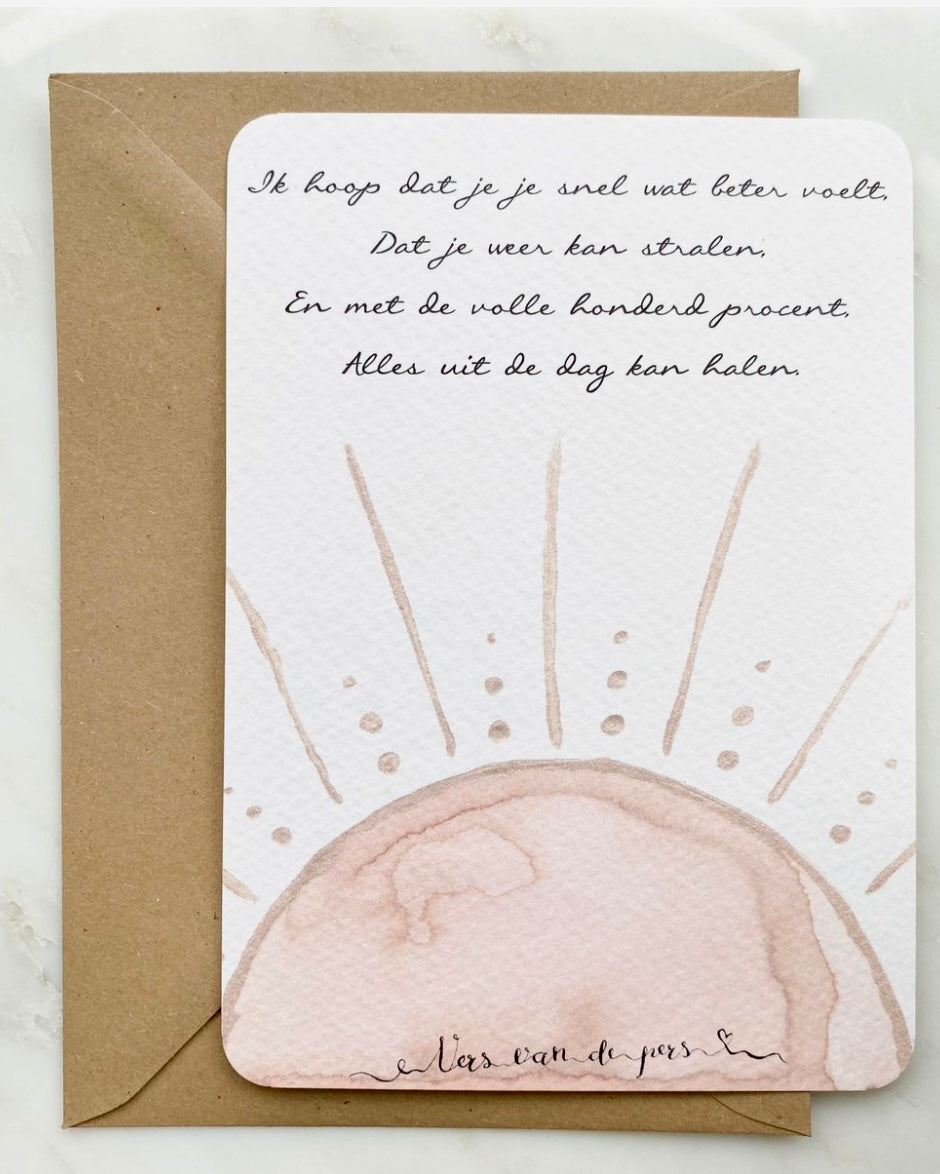 Ik hoop dat je je snel wat beter voelt,
Dat je weer kan stralen,
En met de volle honderd procent,
Alles uit de dag kan halen.
Vers van de pers